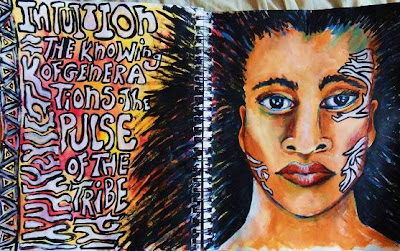 INTUITION
THE KNOWING
OF GENERA
TIONS. THE
PULSE
OF THE
TRIBE